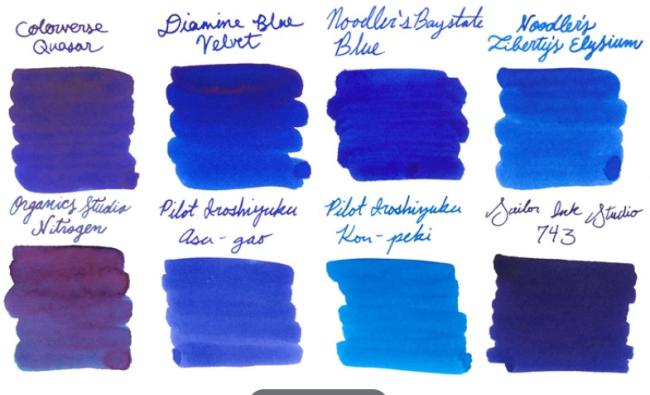 Colorverse
Quasar
Diamine Blue
Velvet
Noodler's Baystate
Blue
Noodler's
Liberty's Elysium
Organics Studio
Nitrogen
Pilot Iroshizuku
Asa-gao
Pilot Iroshizuku
Kon-peki
Sailor Ink Studio
743